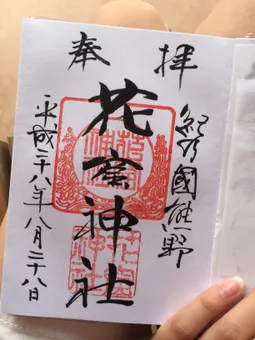 奉拝
紀乃國熊野
花窟神社
平成二八年八月二八日